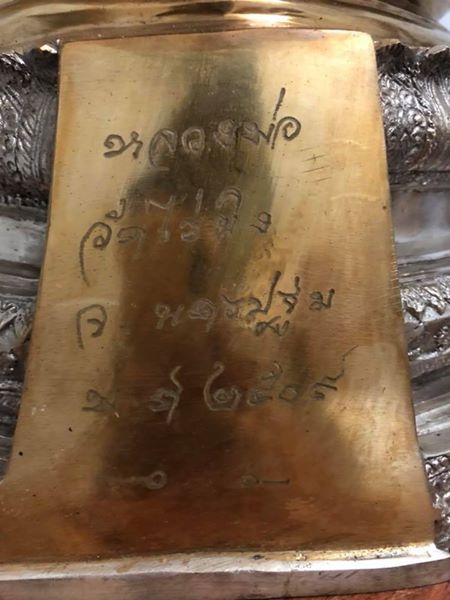 หลวงพ่อ
วัดไร่ขิง
จ. นครปฐม
พ ศ ๒๕๐๙